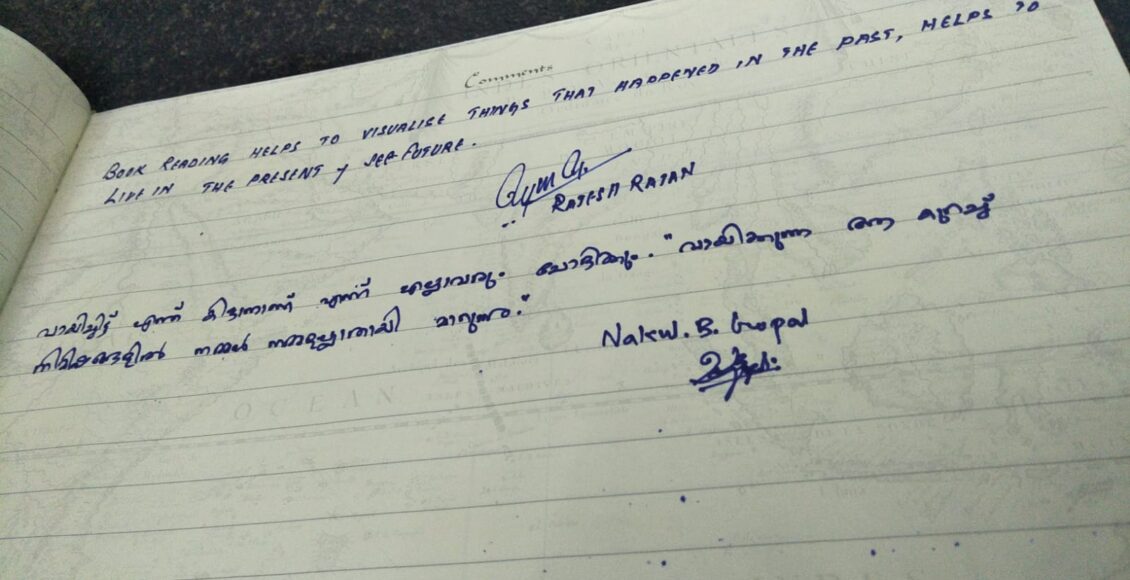 Comments
BOOK READING HELPS TO VISUALISE THINGS THAT HAPPENED IN THE PAST, HELPS TO
LIVE IN THE PRESENT & SEE FUTURE.
RAJESH RAJAN
വായിച്ചിട്ട് എന്ത് കിട്ടാനാണ് എന്ന് എല്ലാവരും ചോദിക്കും. "വായിക്കുന്ന ആ കുറച്ച്
നിമിഷങ്ങളിൽ നമ്മൾ നമ്മളല്ലാതായി മാറുന്നു."
Nakul. B. Gopal
OCEAN